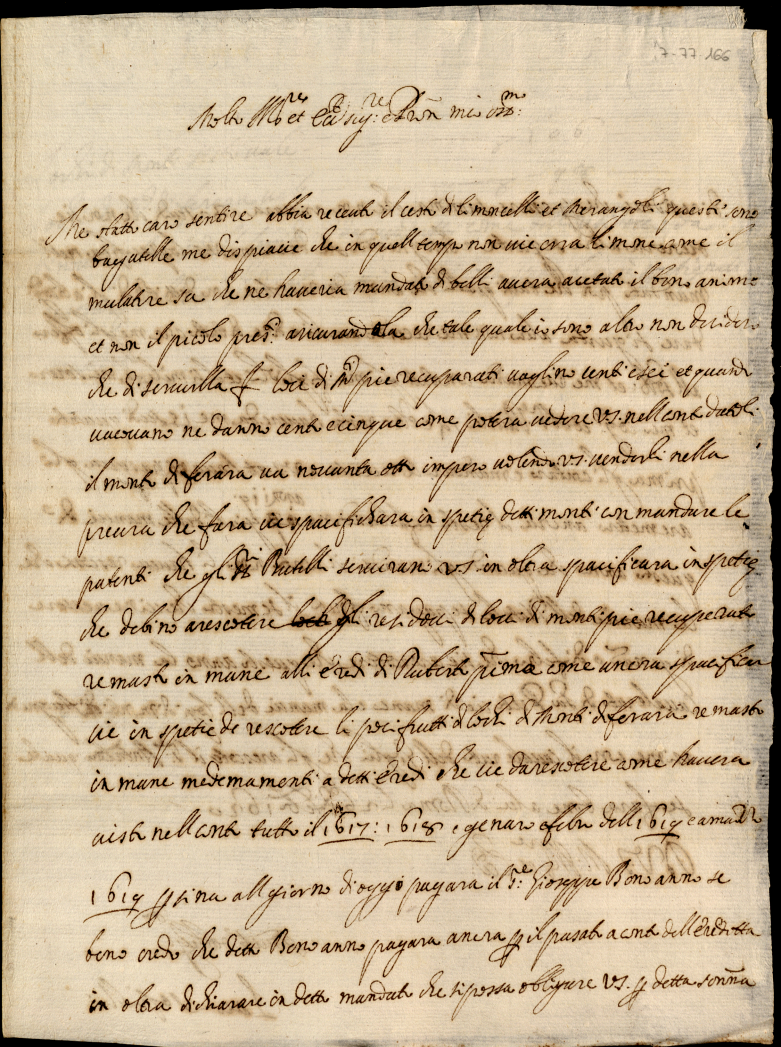 7-77 166
Molto Ill.re et Ecc. sig.re Pron mio oss.mo
Me statto caro sentire abbia receuto il cesto di limoncelli et merangoli questi sono
bagatelle me dispiacie che in quell tempo non vie era limone ame il
mulatire sa che ne haveria mandato di belli avera acetato il bon animo
et non il picolo pres.te asicurandola che tale quale io sono altro non desidero
che di servirlla loci di pie recuparati vaglino cento e sei et quando
vacovano ne danno cento e cinque come potera vedere VS. nell conto datoli
il monte di ferara va novanta otto impero volendo VS. venderli nella
procura che fara vie spacifichara in spetie detti monti con mandare le
patenti che gli SS.ri Butelli servirano VS in oltra spacificara in spetie
che debino arescotere gli residoci di loci di monti pie recuperati
remasti in mane alli eredi di Ruberto prima come ancora spacificar
vie in spetie de rescotere li poci frutti di lochi di Monti di ferara remasti
in mane medemamenti a detti eredi che vie da rescotere come havera
visto nell conto tutto il 1617: 1618 e genaro e febr dell 1619 e a marzo
1619 per sina all giorno di oggi pagara il S.re Gioseppe Bono anno se
bene credo che detto Bono anno pagara ancora per il pasato a conto dell ereditta
in oltra dichiarare in detto mandato che si possa obligare VS. per detta somma